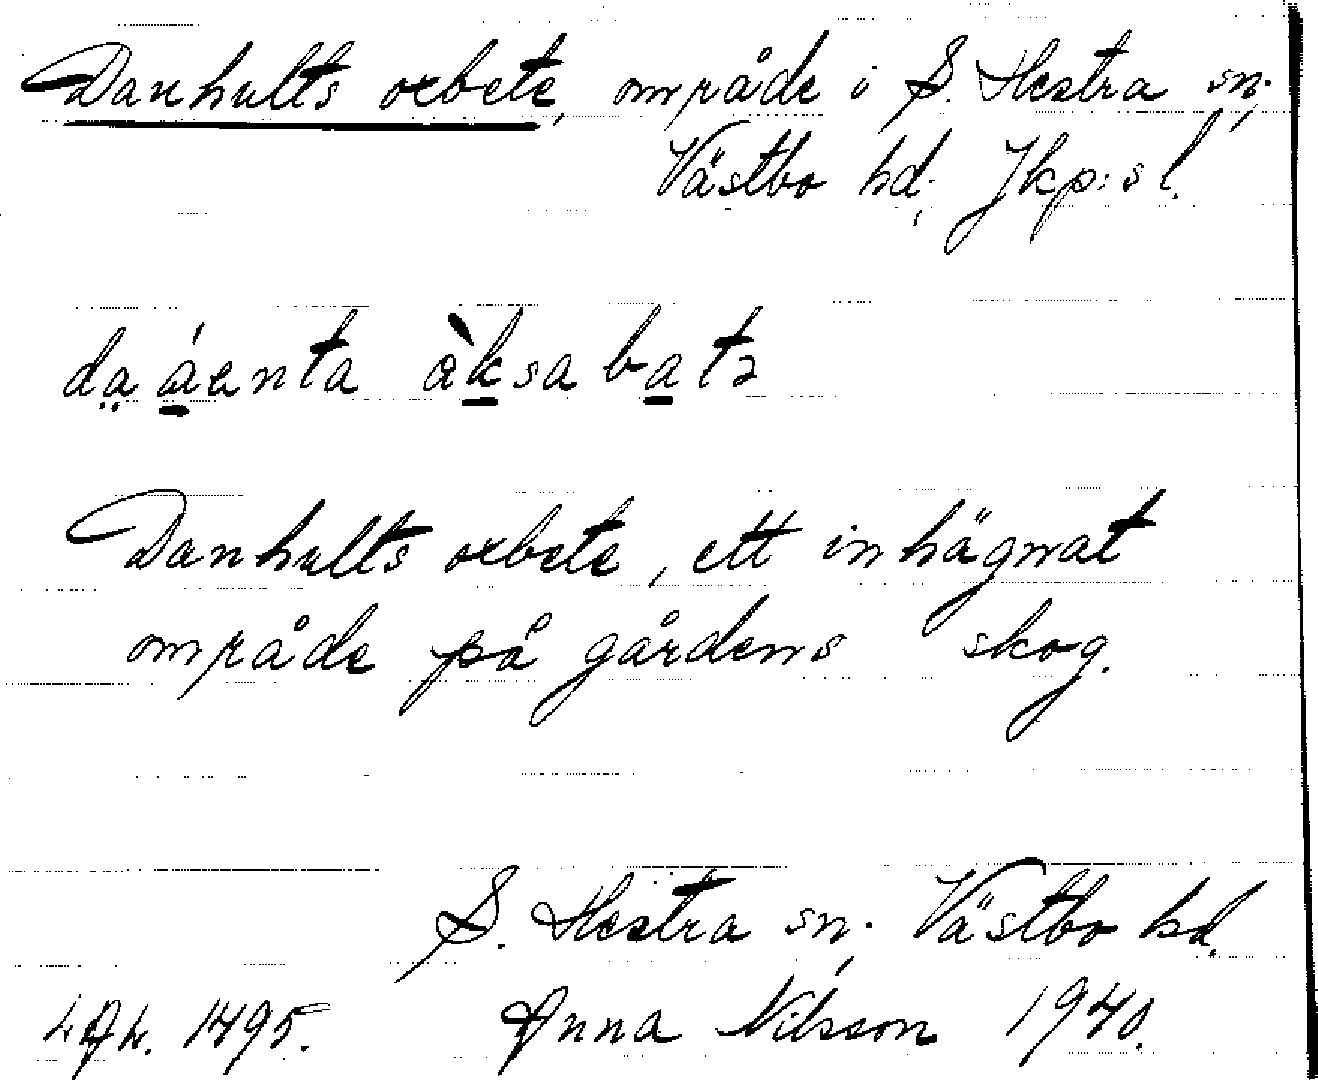 Danhults oxbete, område i S. Hestra sn,
Västbo hd, Jkp:s l.
Danhults oxbete, ett inhägnat
område på gårdens skog.
S. Hestra sn, Västbo hd.
1495. Anna Nilsson 1940.